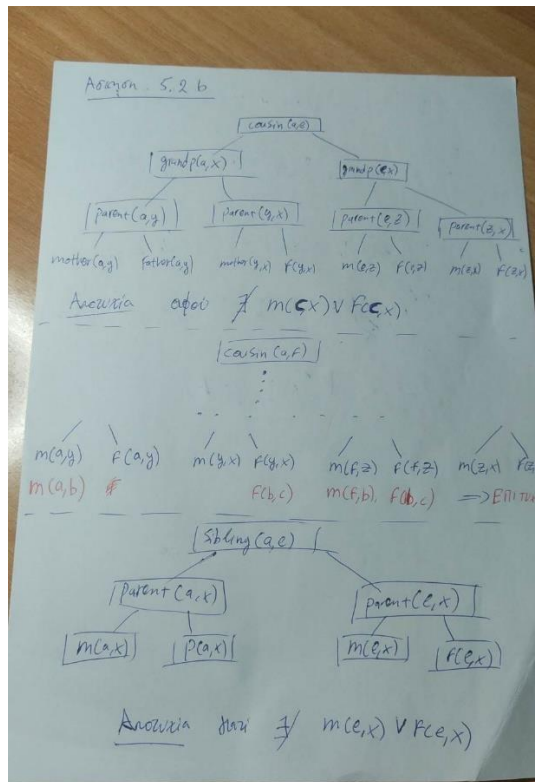 Άσκηση 5.2 b
cousin(a,e)
grandp(a,x) grandp(e,x)
parent(a,y) parent(y,x) parent(e,z) parent(z,x)
mother(a,y) father(a,y) mother(y,x) F(y,x) m(e,z) F(e,z) m(z,x) F(z,x)
Αποτυχία αφού ∄ m(c,x) ∨ F(c,x).
cousin(a,f)
m(a,y) F(a,y) m(y,x) F(y,x) m(f,z) F(f,z) m(z,x) F(z
m(a,b) F(b,c) m(f,b), F(b,c) ⇒ ΕΠΙΤΥ
Sibling(a,e)
parent(a,x) parent(e,x)
m(a,x) p(a,x) m(e,x) F(e,x)
Αποτυχία γιατί ∄ m(e,x) ∨ F(e,x)